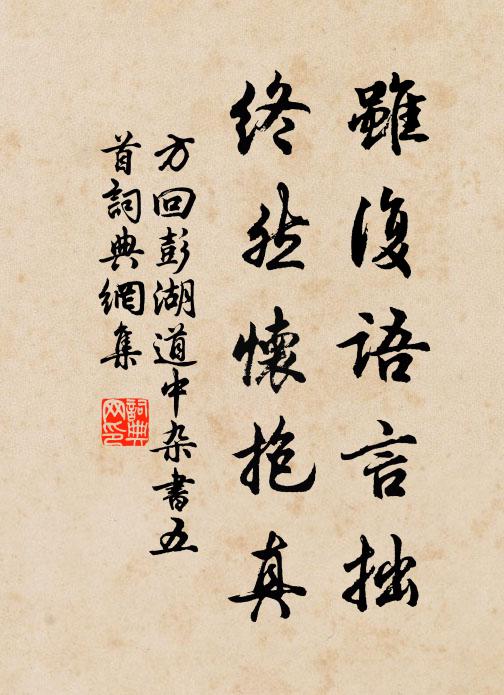 雖復語言拙
終然懷抱真
方回彭湖道中杂書五
首詞典網集
詞典网印